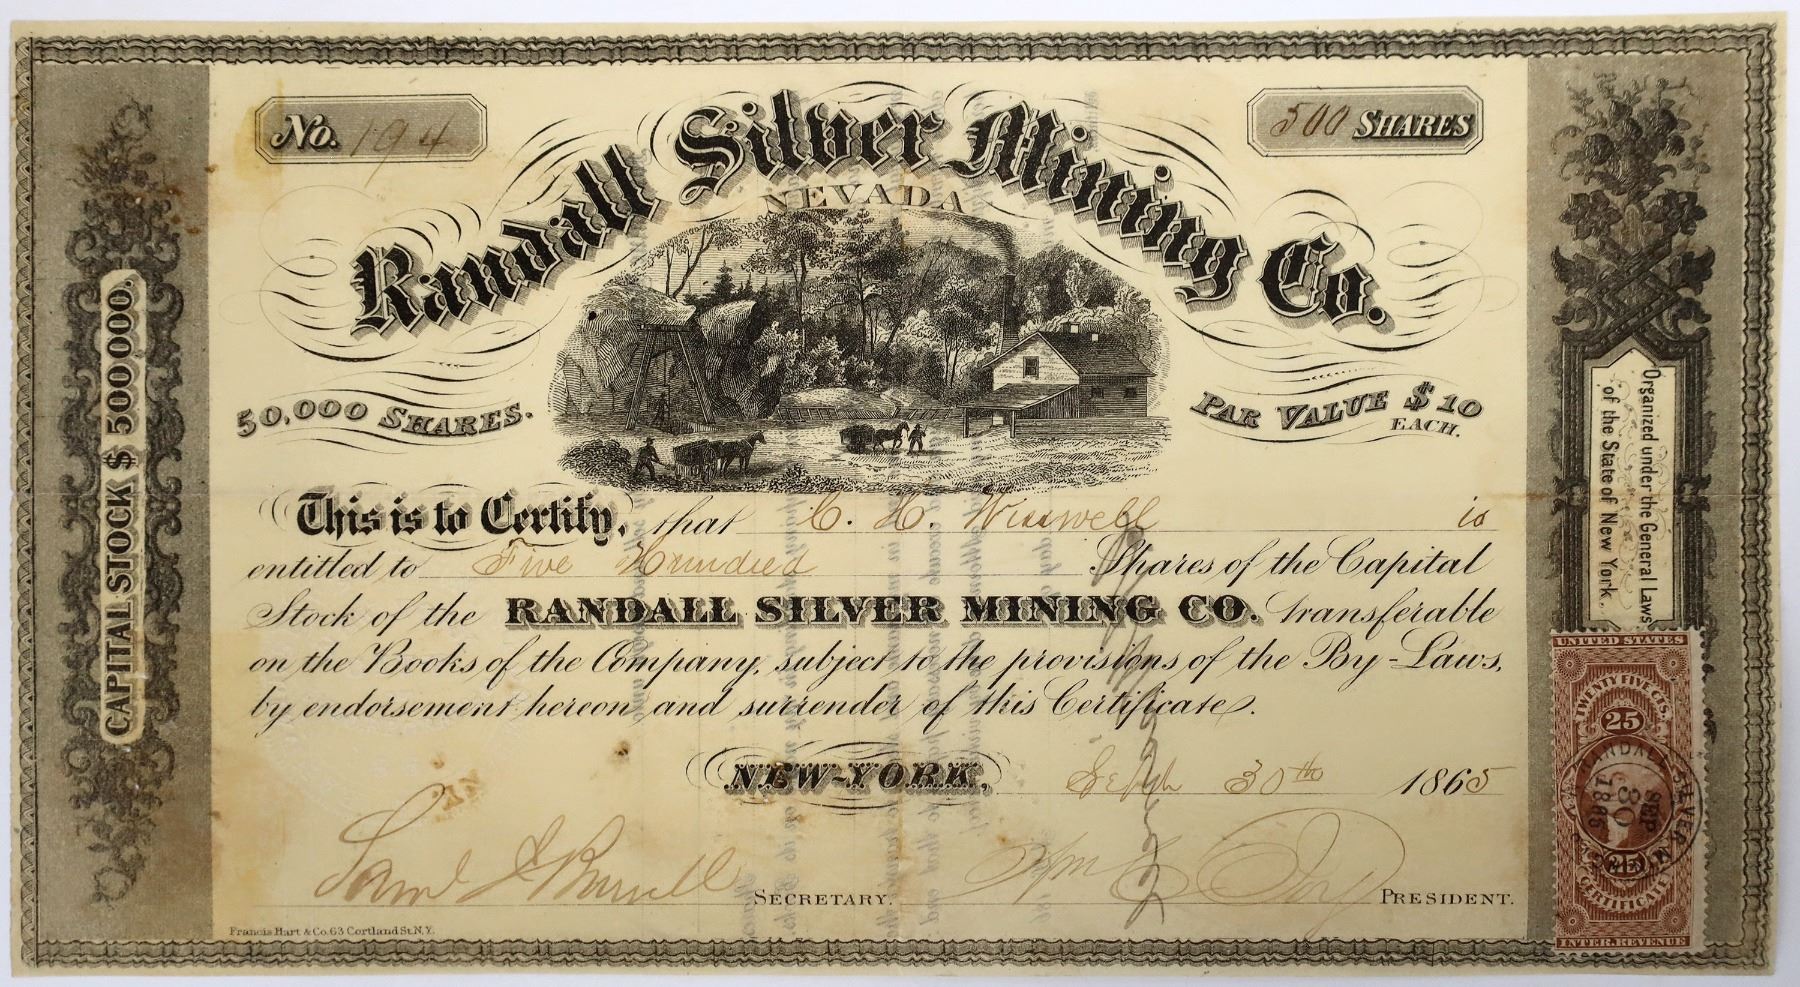 No. 194
500 SHARES
Randall Silver Mining Co.
NEVADA
50,000 SHARES.
PAR VALUE $10
EACH.
CAPITAL STOCK $500,000.
Organized under the General Laws
of the State of New York.
This is to Certify, that C. H. Wisswell is
entitled to Five Hundred Shares of the Capital
Stock of the RANDALL SILVER MINING CO. transferable
on the Books of the Company, subject to the provisions of the By-Laws,
by endorsement hereon and surrender of this Certificate.
NEW-YORK, Sept 30th 1865
Saml
SECRETARY.
Wm
PRESIDENT.
Francis Hart & Co. 63 Cortland St. N.Y.
UNITED STATES
TWENTY FIVE CTS.
25
RANDALL SILVER
SEP
30
1865
25
CERTIFICATE
INTER. REVENUE